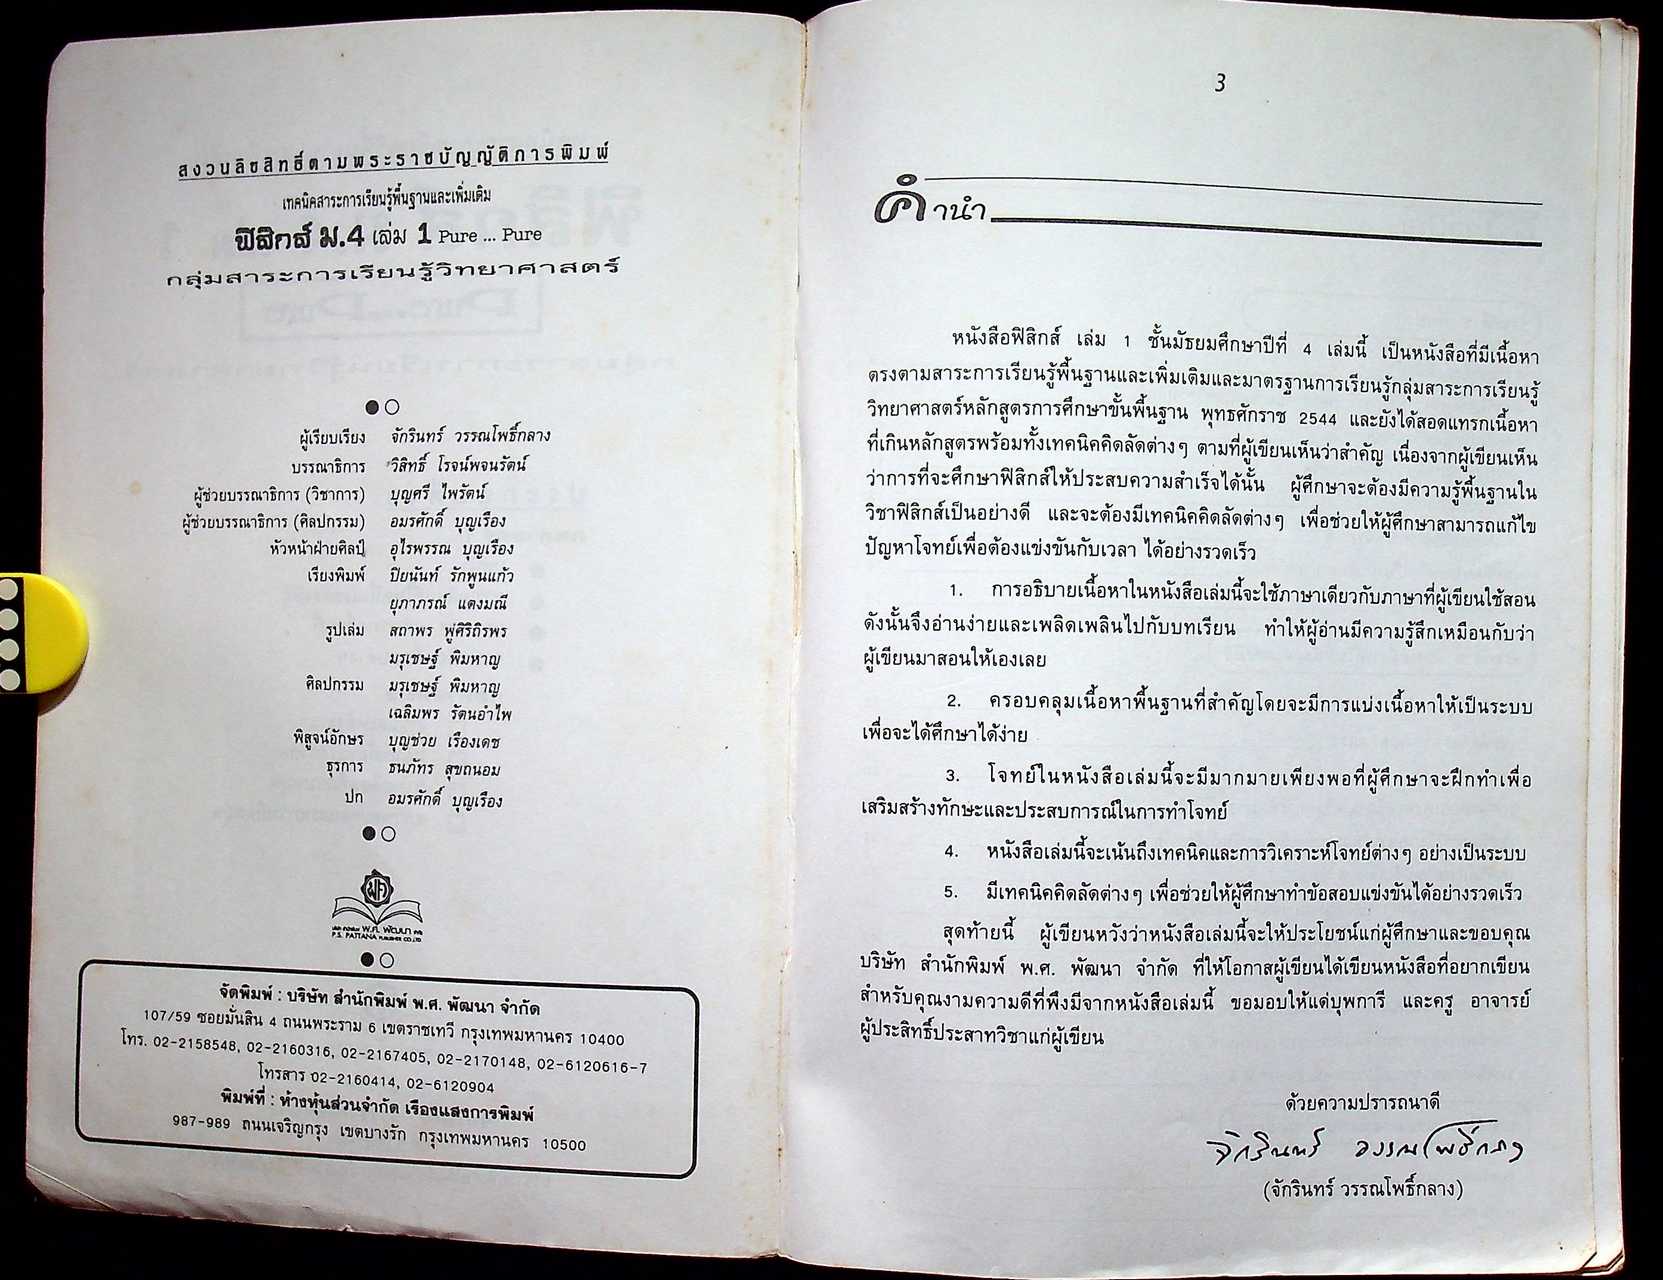 สงวนลิขสิทธิ์ตามพระราชบัญญัติการพิมพ์
เทคนิคสาระการเรียนรู้พื้นฐานและเพิ่มเติม
ฟิสิกส์ ม.4 เล่ม 1 Pure ... Pure
กลุ่มสาระการเรียนรู้วิทยาศาสตร์
ผู้เรียบเรียง จักรินทร์ วรรณโพธิ์กลาง
บรรณาธิการ วิสิทธิ์ โรจน์พจนรัตน์
ผู้ช่วยบรรณาธิการ (วิชาการ) บุญศรี ไพรัตน์
ผู้ช่วยบรรณาธิการ (ศิลปกรรม) อมรศักดิ์ บุญเรือง
หัวหน้าฝ่ายศิลป์ อุไรพรรณ บุญเรือง
เรียงพิมพ์ ปิยนันท์ รักพูนแก้ว
ยุภาภรณ์ แดงมณี
รูปเล่ม สถาพร พู่ศิริถิรพร
มรุเชษฐ์ พิมหาญ
ศิลปกรรม มรุเชษฐ์ พิมหาญ
เฉลิมพร รัตนอำไพ
พิสูจน์อักษร บุญช่วย เรืองเดช
ธุรการ ธนภัทร สุขถนอม
ปก อมรศักดิ์ บุญเรือง
พ.ศ. พัฒนา
P.S. PATTANA PUBLISHER CO.,LTD
จัดพิมพ์ : บริษัท สำนักพิมพ์ พ.ศ. พัฒนา จำกัด
107/59 ซอยมั่นสิน 4 ถนนพระราม 6 เขตราชเทวี กรุงเทพมหานคร 10400
โทร. 02-2158548, 02-2160316, 02-2167405, 02-2170148, 02-6120616-7
โทรสาร 02-2160414, 02-6120904
พิมพ์ที่ : ห้างหุ้นส่วนจำกัด เรืองแสงการพิมพ์
987-989 ถนนเจริญกรุง เขตบางรัก กรุงเทพมหานคร 10500
3
คำนำ
หนังสือฟิสิกส์ เล่ม 1 ชั้นมัธยมศึกษาปีที่ 4 เล่มนี้ เป็นหนังสือที่มีเนื้อหา
ตรงตามสาระการเรียนรู้พื้นฐานและเพิ่มเติมและมาตรฐานการเรียนรู้กลุ่มสาระการเรียนรู้
วิทยาศาสตร์หลักสูตรการศึกษาขั้นพื้นฐาน พุทธศักราช 2544 และยังได้สอดแทรกเนื้อหา
ที่เกินหลักสูตรพร้อมทั้งเทคนิคคิดลัดต่างๆ ตามที่ผู้เขียนเห็นว่าสำคัญ เนื่องจากผู้เขียนเห็น
ว่าการที่จะศึกษาฟิสิกส์ให้ประสบความสำเร็จได้นั้น ผู้ศึกษาจะต้องมีความรู้พื้นฐานใน
วิชาฟิสิกส์เป็นอย่างดี และจะต้องมีเทคนิคคิดลัดต่างๆ เพื่อช่วยให้ผู้ศึกษาสามารถแก้ไข
ปัญหาโจทย์เพื่อต้องแข่งขันกับเวลา ได้อย่างรวดเร็ว
1. การอธิบายเนื้อหาในหนังสือเล่มนี้จะใช้ภาษาเดียวกับภาษาที่ผู้เขียนใช้สอน
ดังนั้นจึงอ่านง่ายและเพลิดเพลินไปกับบทเรียน ทำให้ผู้อ่านมีความรู้สึกเหมือนกับว่า
ผู้เขียนมาสอนให้เองเลย
2. ครอบคลุมเนื้อหาพื้นฐานที่สำคัญโดยจะมีการแบ่งเนื้อหาให้เป็นระบบ
เพื่อจะได้ศึกษาได้ง่าย
3. โจทย์ในหนังสือเล่มนี้จะมีมากมายเพียงพอที่ผู้ศึกษาจะฝึกทำเพื่อ
เสริมสร้างทักษะและประสบการณ์ในการทำโจทย์
4. หนังสือเล่มนี้จะเน้นถึงเทคนิคและการวิเคราะห์โจทย์ต่างๆ อย่างเป็นระบบ
5. มีเทคนิคคิดลัดต่างๆ เพื่อช่วยให้ผู้ศึกษาทำข้อสอบแข่งขันได้อย่างรวดเร็ว
สุดท้ายนี้ ผู้เขียนหวังว่าหนังสือเล่มนี้จะให้ประโยชน์แก่ผู้ศึกษาและขอบคุณ
บริษัท สำนักพิมพ์ พ.ศ. พัฒนา จำกัด ที่ให้โอกาสผู้เขียนได้เขียนหนังสือที่อยากเขียน
สำหรับคุณงามความดีที่พึงมีจากหนังสือเล่มนี้ ขอมอบให้แด่บุพการี และครู อาจารย์
ผู้ประสิทธิ์ประสาทวิชาแก่ผู้เขียน
ด้วยความปรารถนาดี
จักรินทร์ วรรณโพธิ์กลาง
(จักรินทร์ วรรณโพธิ์กลาง)